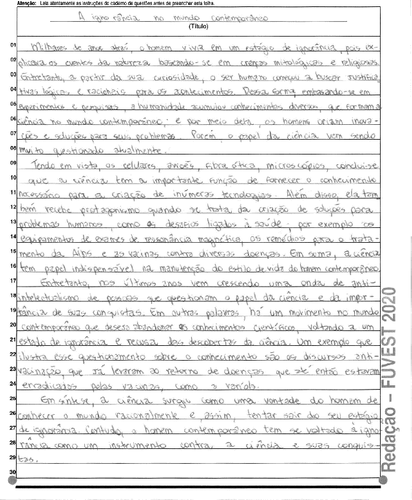 Atenção: Leia atentamente as instruções do caderno de questões antes de preencher esta folha.
A ignorância no mundo contemporâneo
(Título)
01 Milhares de anos atrás, o homem vivia em um estágio de ignorância, pois ex-
02 plicava os eventos da natureza baseando-se em crenças mitológicas e religiosas.
03 Entretanto, a partir da sua curiosidade, o ser humano começou a buscar justifica-
04 tivas lógicas e racionais para os acontecimentos. Dessa forma, embasando-se em
05 experimentos e pesquisas, a humanidade acumulou conhecimentos diversos, que formam a
06 ciência no mundo contemporâneo, e por meio dela, os homens criam inova-
07 ções e soluções para seus problemas. Porém, o papel da ciência vem sendo
08 muito questionado atualmente.
09 Tendo em vista, os celulares, aviões, fibra ótica, microscópios, conclui-se
10 que a ciência tem a importante função de fornecer o conhecimento
11 necessário para a criação de inúmeras tecnologias. Além disso, ela tam-
12 bém recebe protagonismo quando se trata da criação de soluções para
13 problemas humanos como os desafios ligados à saúde, por exemplo os
14 equipamentos de exames de ressonância magnética, os remédios para o trata-
15 mento da Aids e as vacinas contra diversas doenças. Em suma, a ciência
16 tem papel indispensável na manutenção do estilo de vida do homem contemporâneo.
17 Entretanto, nos últimos anos vem crescendo uma onda de anti-
18 intelectualismo de pessoas que questionam o papel da ciência e da impor-
19 tância de suas conquistas. Em outras palavras, há um movimento no mundo
20 contemporâneo que deseja abandonar os conhecimentos científicos, voltando a um
21 estado de ignorância e recusa das descobertas da ciência. Um exemplo que
22 ilustra esse questionamento sobre o conhecimento são os discursos anti-
23 vacinação, que já levaram ao retorno de doenças que até então estavam
24 erradicadas pelas vacinas, como a varíola.
25 Em síntese, a ciência surgiu como uma vontade do homem de
26 conhecer o mundo racionalmente e assim, tentar sair do seu estágio
27 de ignorância. Contudo, o homem contemporâneo tem se voltado à igno-
28 rância como um instrumento contra a ciência e suas conquis-
29 tas.
30
Redação – FUVEST 2020